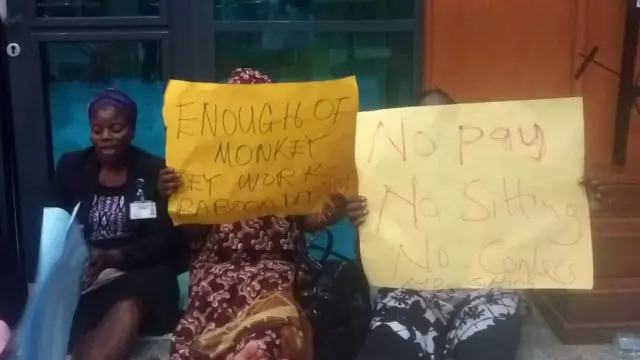 ENOUGH OF
MONKEY
DEY WORK
BABOON DEY
No pay
No Sitting
No
NO SITTING